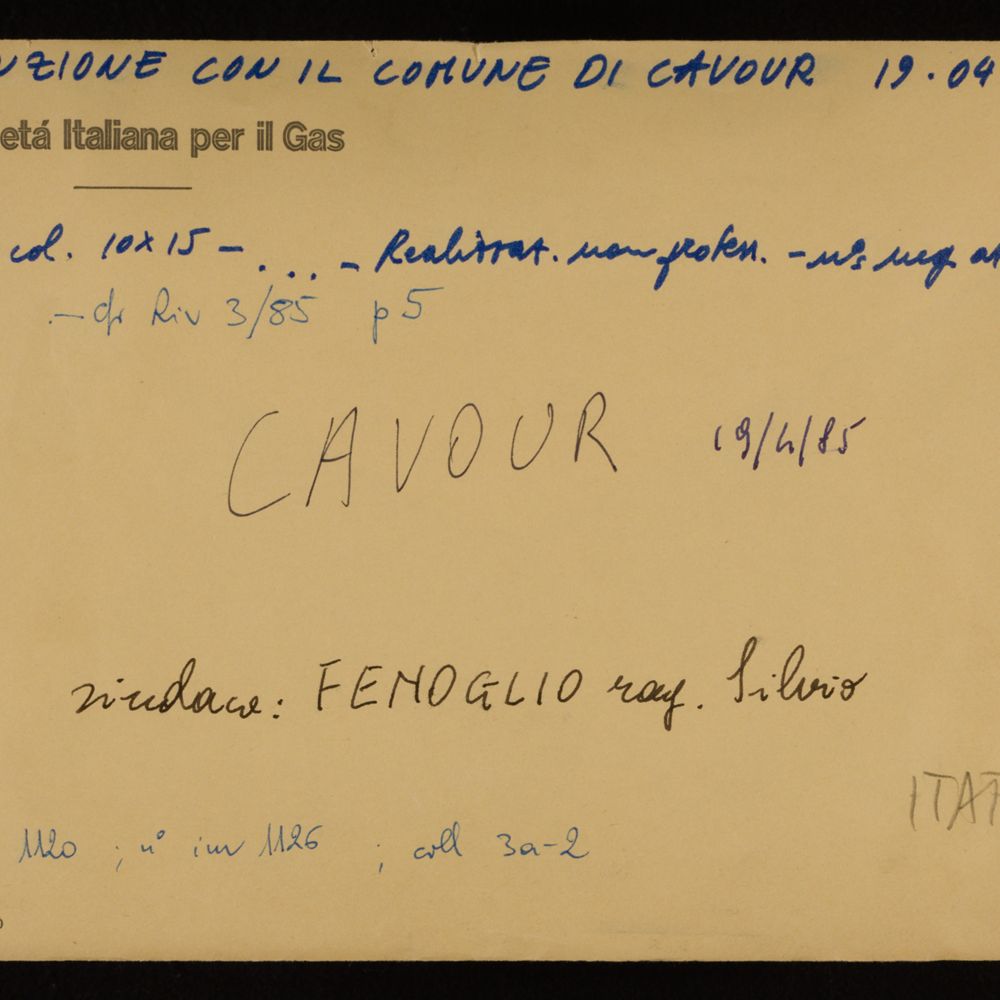 UZIONE CON IL COMUNE DI CAVOUR 19.04
etá Italiana per il Gas
col. 10x15 - ... - Realizzaz. non profess. - n°s neg
- cfr Riv 3/85 p 5
CAVOUR 19/4/85
sindaco: FENOGLIO rag. Silvio
ITA
1120 ; n° inv 1126 ; coll 3a-2